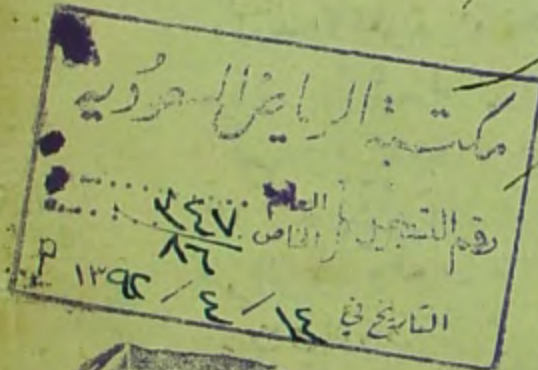 مكتبة الرياض السعودية
رقم التسجيل العام ٣٤٧
الخاص ٨٦
التاريخ في ١٤ / ٤ / ١٣٩٢ م